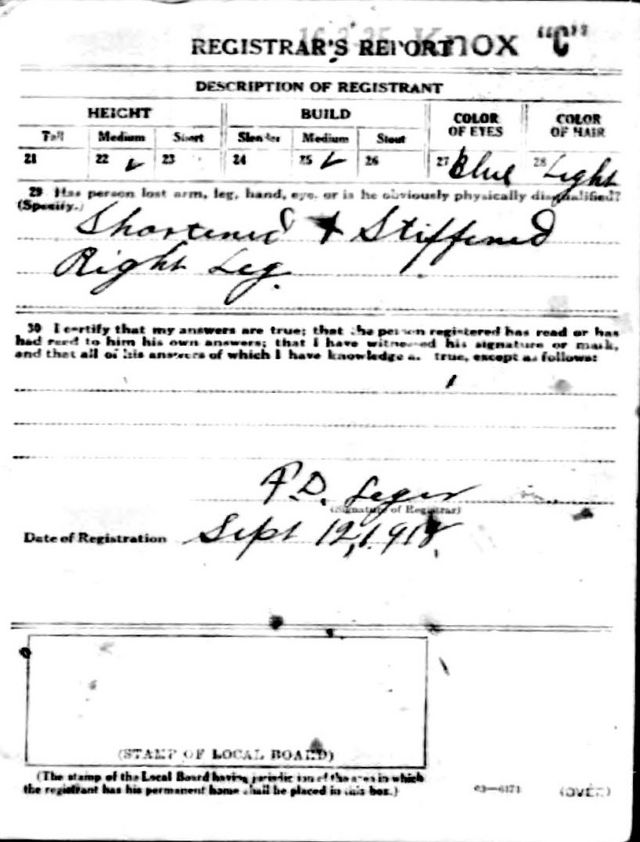 REGISTRAR'S REPORT Knox "C"
DESCRIPTION OF REGISTRANT
HEIGHT BUILD COLOR OF EYES COLOR OF HAIR
Tall Medium Short Slender Medium Stout
21 22 ✓ 23 24 25 ✓ 26 27 Blue 28 Light
29 Has person lost arm, leg, hand, eye, or is he obviously physically disqualified?
(Specify.)
Shortened & Stiffened
Right Leg.
30 I certify that my answers are true; that the person registered has read or has
had read to him his own answers; that I have witnessed his signature or mark,
and that all of his answers of which I have knowledge are true, except as follows:
F. D. Leger
(Signature of Registrar)
Date of Registration Sept 12, 1918,
(STAMP OF LOCAL BOARD)
(The stamp of the Local Board having jurisdiction of the area in which
the registrant has his permanent home shall be placed in this box.)
03—6171 (OVER)